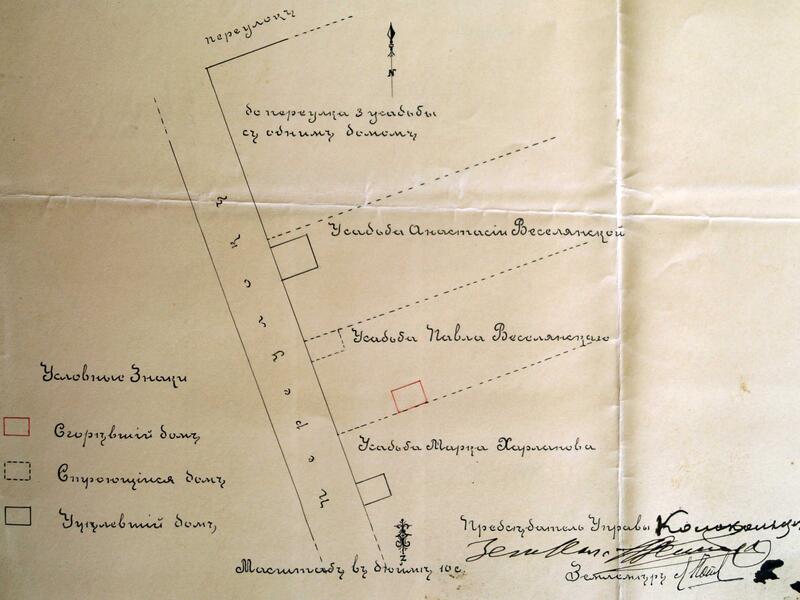 переулокъ
N
до переулка 3 усадьбы
съ однимъ домомъ
Усадьба Анастасіи Веселянской
Усадьба Павла Веселянскаго
Усадьба Марка Харламова
Условные Знаки
Сгорѣвшій домъ
Строющійся домъ
Уцѣлевшій домъ
Масштабъ въ дюймѣ 10 с.
Предсѣдатель Управы
Землемѣръ